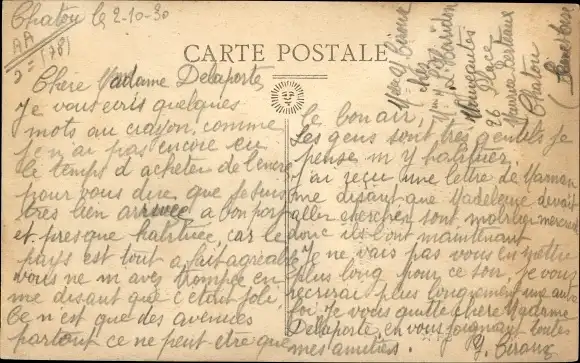 Chatou le 2-10-30
CARTE POSTALE
Chère Madame Delaporte,
Je vous écris quelques
mots au crayon, comme
je n ai pas encore eu
le temps d acheter de l'encre
pour vous dire que je suis
très bien arrivée a bon port
et presque habituée, car le
pays est tout a fait agréable
vous ne m avez trompée en
me disant que c etait joli.
Ce n'est que des avenues
partout ce ne peut etre que
le bon air,
Les gens sont très gentils je
pense m y habituer
j'ai reçu une lettre de Maman
me disant que Madeleine devait
aller chercher sont mobilier mercredi
donc ils l'ont maintenant
Je ne vais pas vous en mettre
plus long pour ce soir, je vous
recrirai plus longuement une autre
foi Je vous quitte chère Madame
Delaporte, en vous joignant toutes
mes amitiés. Y. Giroux
Giroux
chez
Nouveautés
26 Place
Maurice Berteaux
Chatou